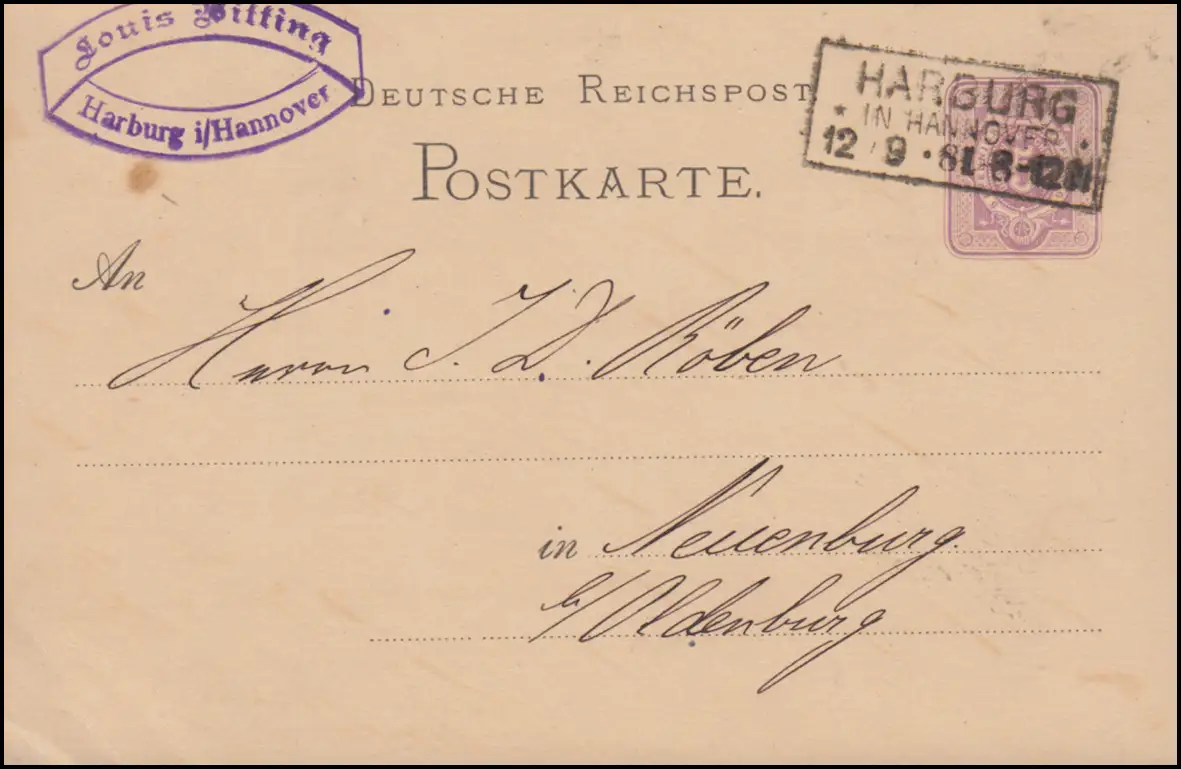 Louis Witting
Harburg i/Hannover
DEUTSCHE REICHSPOST
POSTKARTE.
HARBURG
* IN HANNOVER *
12 / 9 . 81. 8-12N
An
Herrn J. D. Röben
in Neuenburg.
b/Oldenburg